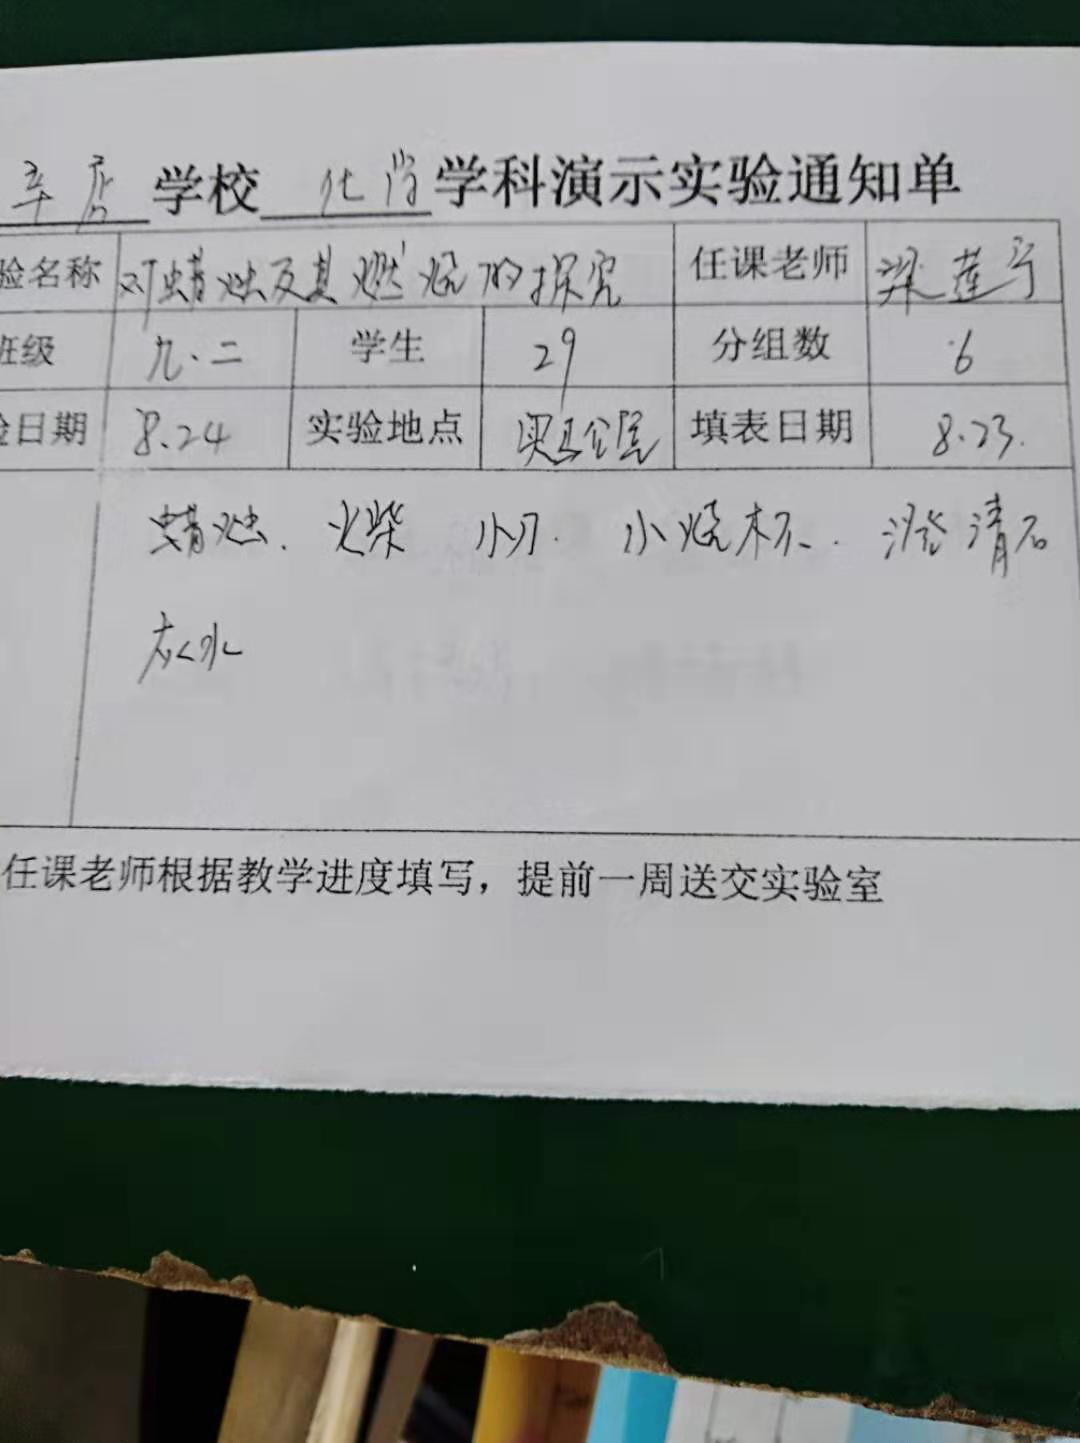 辛店学校 化学 学科演示实验通知单
验名称 对蜡烛及其燃烧的探究 任课老师 梁莲宁
班级 九.二 学生 29 分组数 6
验日期 8.24 实验地点 实验室 填表日期 8.23.
蜡烛. 火柴 小刀. 小烧杯. 澄清石
灰水
任课老师根据教学进度填写，提前一周送交实验室